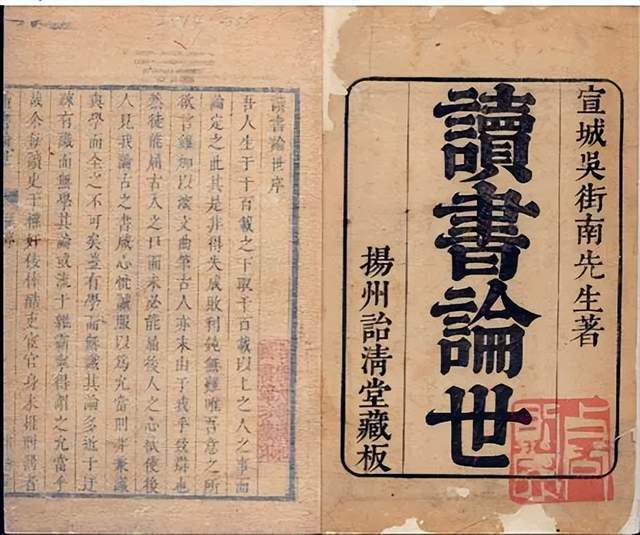 宣城吳街南先生著
讀書論世
揚州詒清堂藏板
讀書論世序
吾人生于千百載之下取千百載以上之人之事而
論定之此其是非得失成敗利鈍無難唯吾意之所
欲言雖加以深文曲筆古人亦末由于我乎致辯也
然徒能屈古人之口而未必能屈後人之心試使後
人見我論古之書咸心誠服以爲允當則非兼識
與學而全之不可矣蓋有學而無識其論多近于迂
踈有識而無學其論或流于雜寧得謂之允當乎
余每讀史于權奸佞倖酷吏宦官身未刑罰者